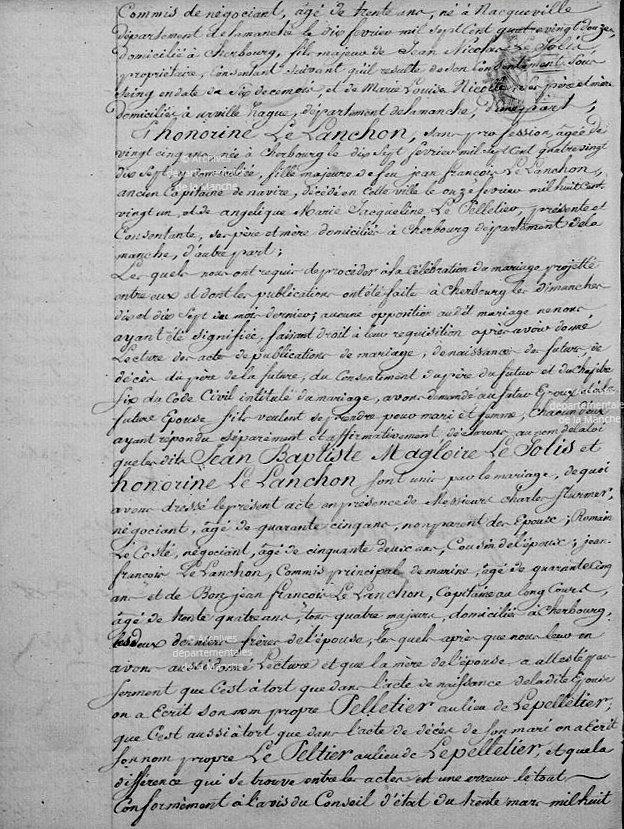 Commis de négociant, âgé de trente ans, né à Nacqueville
département de la manche le dix fevrier mil sept cent quatre vingt douze,
domicilié à Cherbourg, fils majeur de Jean Nicolas Le Jolis,
propriétaire, Consentant suivant qu'il resulte de son Consentement sous
seing en date du six decembre, et de Marie Louise Nicolle, ses père et mère
domiciliés à urville hague, département de la manche, d'une part,
Et honorine Le Lanchon, sans profession, âgée de
vingt cinq ans née à Cherbourg le dix Sept fevrier mil sept cent quatre vingt
dix sept, y domiciliée, fille majeure de feu jean françois Le Lanchon,
ancien Capitaine de navire, décédé en Cette ville le onze fevrier mil huit cent
vingt un, et de angelique Marie Jacqueline Le Pelletier, présente et
Consentante, ses père et mère domiciliés à Cherbourg département de la
manche, d'autre part;
Les quels nous ont requis de procéder à la Célébration du mariage projetté
entre eux et dont les publications ont été faite à Cherbourg les Dimanches
dix et dix Sept du mois dernier; aucune opposition audit mariage ne nous
ayant été signifiée, faisant droit à leur requisition après avoir donné
Lecture des acte de publications de mariage, de naissance des futurs, de
décès du père de la future, du Consentement du père du futur et du Chapitre
six du Code Civil intitulé du mariage, avons demandé au futur Epoux et à la
future Epouse s'ils veulent se prendre pour mari et femme, Chacun d'eux
ayant répondu séparément et affirmativement déclarons au nom de la loi
que les dits Jean Baptiste Magloire Le Jolis et
honorine Le Lanchon sont unis par le mariage, de quoi
avons dressé le présent acte en présence de Messieurs Charles
négociant, âgé de quarante cinq ans, non parent des Epoux; Romain
Le Costé, négociant, âgé de cinquante deux ans, Cousin de l'époux; jean
françois Le Lanchon, Commis principal de marine, âgé de quarante Cinq
ans et de Bon jean françois Le Lanchon, Capitaine au long Cours,
âgé de trente quatre ans, tous quatre majeurs, domiciliés à Cherbourg,
les deux derniers frères de l'épouse, les quels après que nous leur en
avons aussi donné Lecture et que la mère de l'épouse a attesté par
serment que C'est à tort que dans l'acte de naissance de ladite Epouse
on a Ecrit son nom propre Pelletier au lieu de Lepelletier,
que C'est aussi à tort que dans l'acte de décès de son mari on a Ecrit
son nom propre Le Peltier au lieu de Lepelletier, et que la
différence qui se trouve entre les actes est une erreur le tout
Conformément à l'avis du Conseil d'état du trente mars mil huit
© Archives
départementales
de la Manche
© Archives
départementales
de la Manche
© Archives
départementales
de la Manche